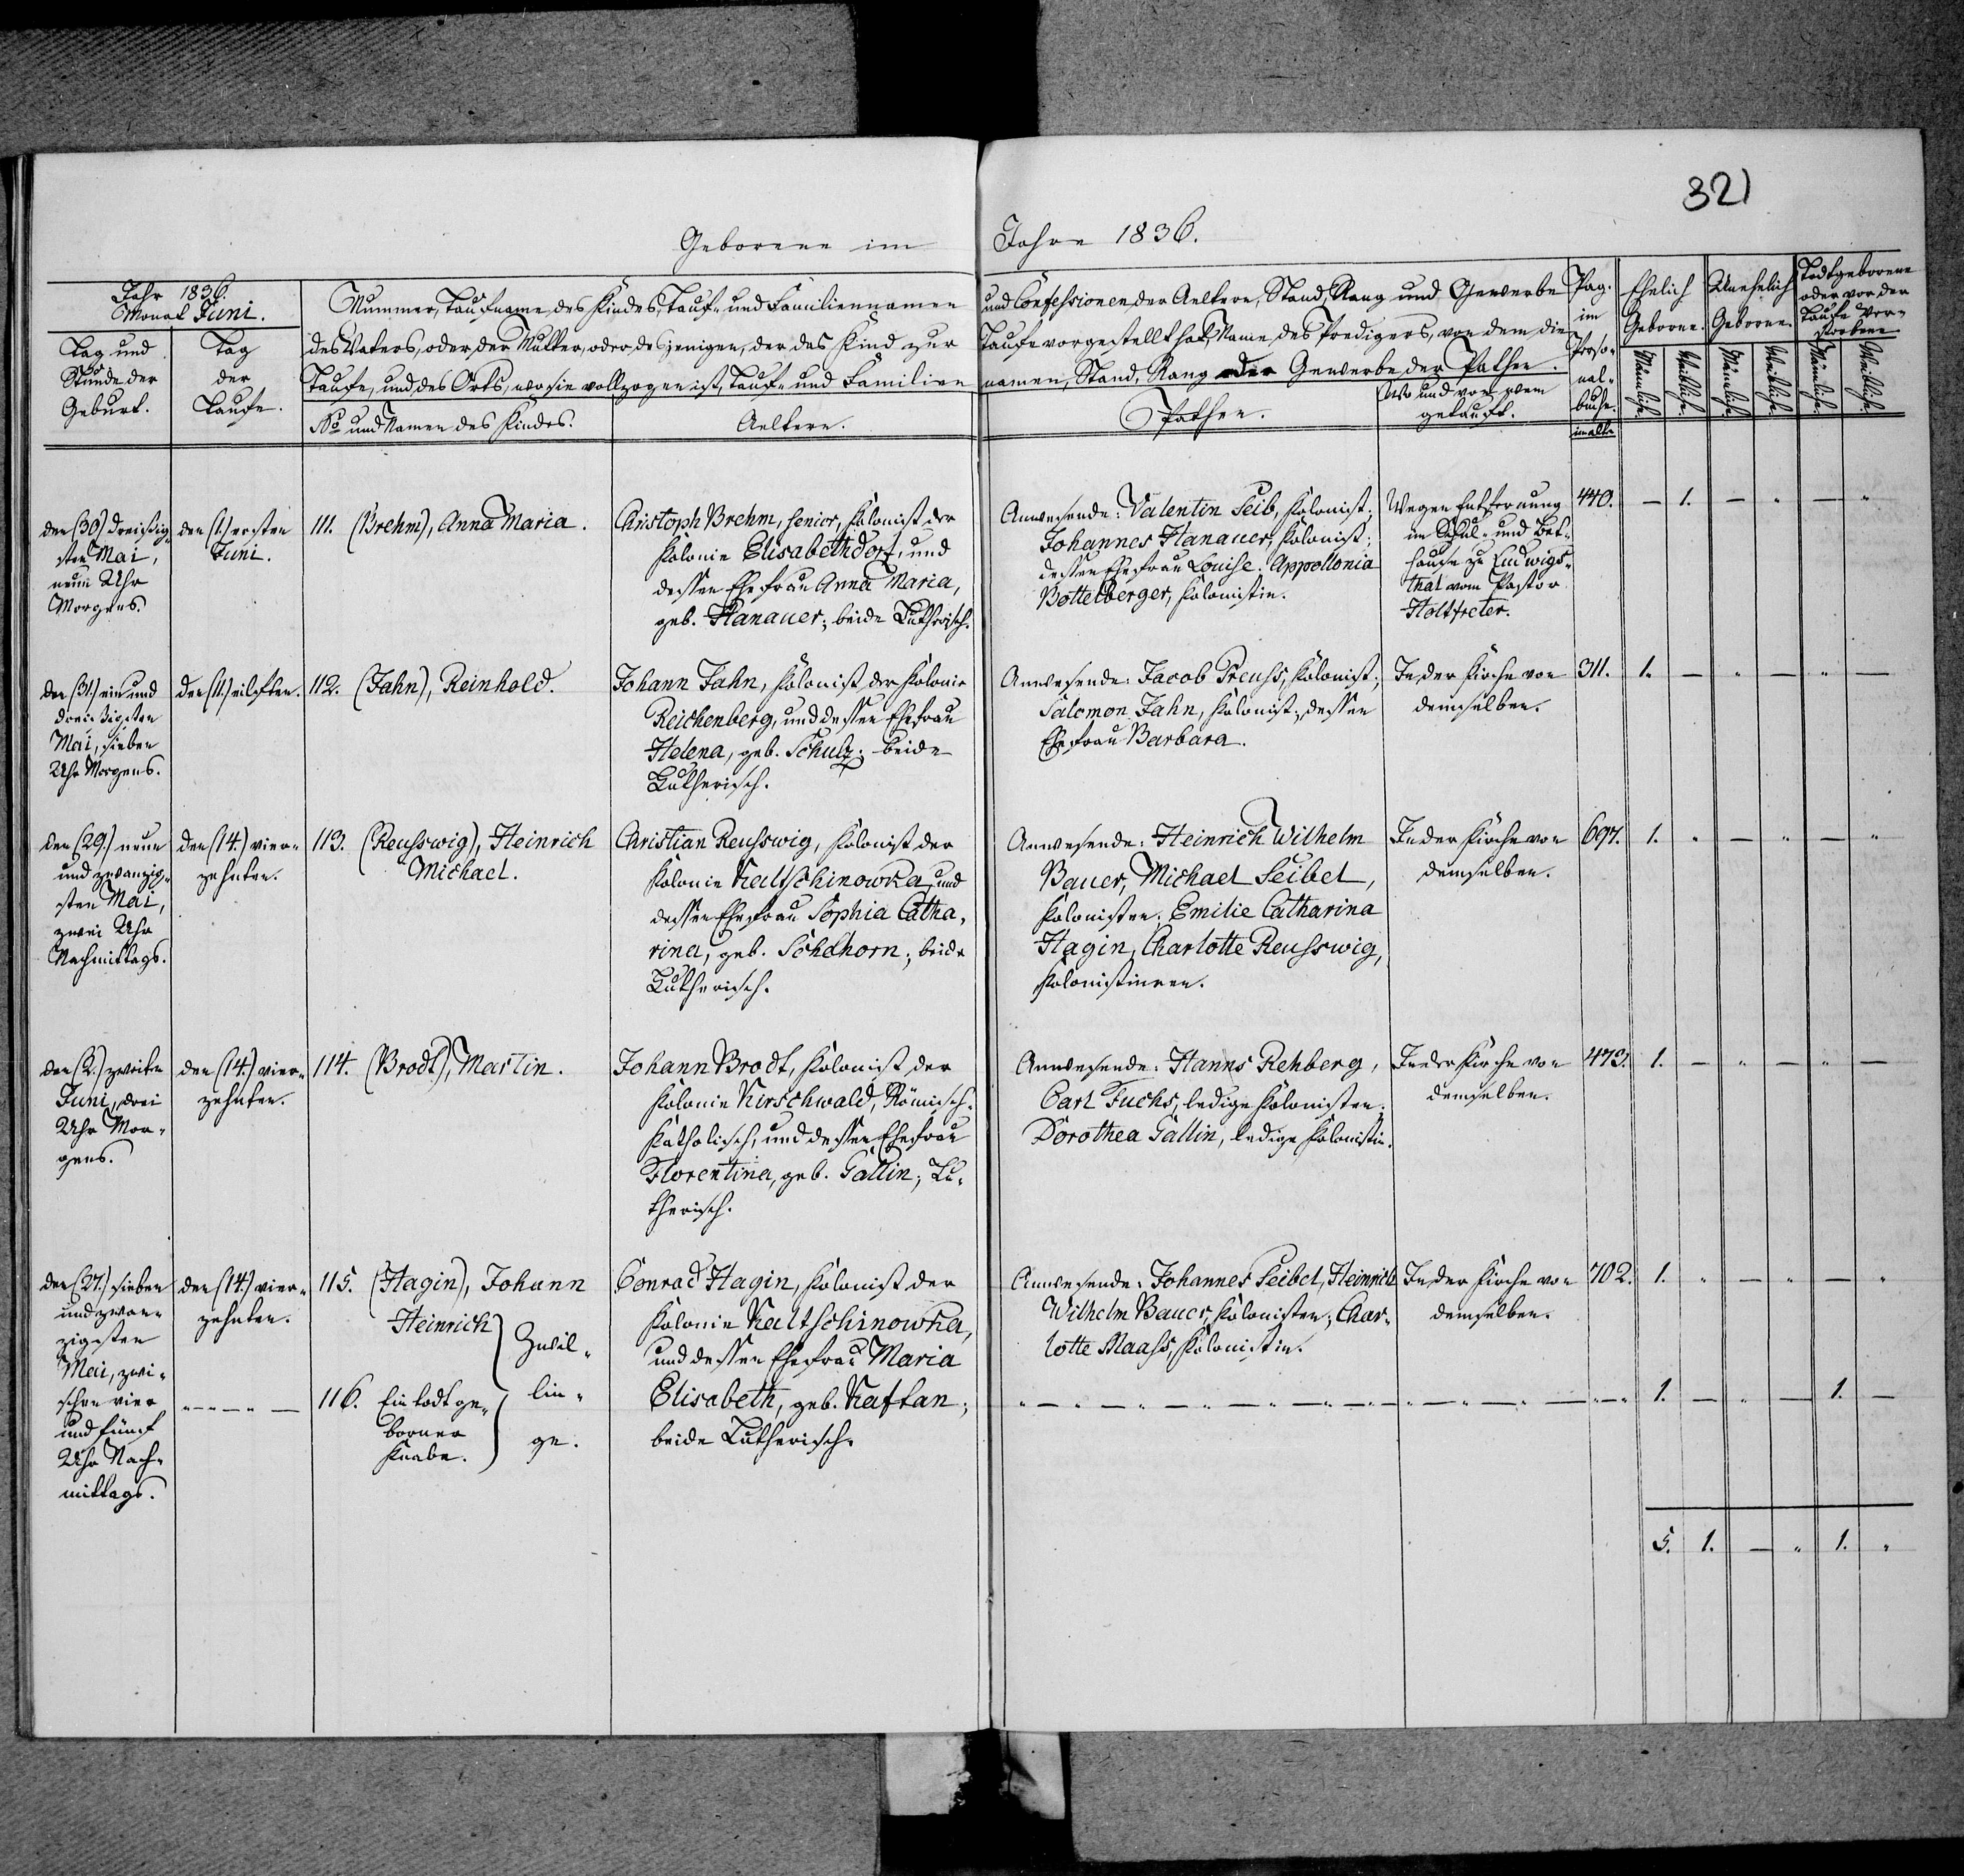 321
Geborene im Jahre 1836.
Jahr 1836.
Monat Juni.
Tag und
Stunde der
Geburt.
Tag
der
Taufe.
Nummer, Taufname des Kindes, Tauf- und Familiennamen und Confessionen der Aeltern, Stand, Rang und Gewerbe
des Vaters, oder der Mutter, oder desjenigen, der das Kind zur Taufe vorgestellt hat, Name des Predigers, von dem die
Taufe, und des Orts, wo sie vollzogen ist, Tauf- und Familiennamen, Stand, Rang oder Gewerbe der Pathen.
No und Namen des Kindes.
Aeltern.
Pathen.
Wo und von wem
getauft.
Pag.
im
Perso-
nal-
buche.
im alten
Ehelich
Geborne.
Unehelich
Geborne.
Todtgeborene
oder vor der
Taufe Ver-
storbene
Männliche.
Weibliche.
Männliche.
Weibliche.
Männliche.
Weibliche.
den (30.) dreißig-
sten Mai,
neun Uhr
Morgens.
den (1.) ersten
Juni.
111. (Brehm), Anna Maria.
Christoph Brehm, senior, Kolonist der
Kolonie Elisabethdorf, und
dessen Ehefrau Anna Maria,
geb. Hanauer; beide Lutherisch.
Anwesende: Valentin Seib, Kolonist;
Johannes Hanauer, Kolonist;
dessen Ehefrau Louise. Appollonia
Bottelberger, Kolonistin.
Wegen Entfernung
im Schul- und Bet-
hause zu Ludwigs-
thal vom Pastor
Holtfreter.
440. — 1. — " — "
den (31.) ein und
dreißigsten
Mai, sieben
Uhr Morgens.
den (11.) eilften.
112. (Jahn), Reinhold.
Johann Jahn, Kolonist der Kolonie
Reichenberg, und dessen Ehefrau
Helena, geb. Schulz; beide
Lutherisch.
Anwesende: Jacob Preuss, Kolonist;
Salomon Jahn, Kolonist; dessen
Ehefrau Barbara.
In der Kirche von
demselben.
311. 1. — " — " —
den (29.) neun
und zwanzig-
sten Mai,
zwei Uhr
Nachmittags.
den (14.) vier-
zehnten.
113. (Reusswig), Heinrich
Michael.
Christian Reusswig, Kolonist der
Kolonie Kaltschinowka, und
dessen Ehefrau Sophia Catha-
rina, geb. Schelhorn; beide
Lutherisch.
Anwesende: Heinrich Wilhelm
Bauer, Michael Seibel,
Kolonisten; Emilie Catharina
Hagin, Charlotte Reusswig,
Kolonistinnen.
In der Kirche von
demselben.
697. 1. " — " — "
den (2.) zweiten
Juni, drei
Uhr Mor-
gens.
den (14.) vier-
zehnten.
114. (Brodt), Martin.
Johann Brodt, Kolonist der
Kolonie Kirschwald, Römisch-
Katholisch, und dessen Ehefrau
Florentina, geb. Gallin; Lu-
therisch.
Anwesende: Hanns Rehberg,
Carl Fuchs, ledige Kolonisten;
Dorothea Gallin, ledige Kolonistin.
In der Kirche von
demselben.
473. 1. — " — " —
den (27.) sieben
und zwan-
zigsten
Mai, zwi-
schen vier
und fünf
Uhr Nach-
mittags.
den (14.) vier-
zehnten.
115. (Hagin), Johann
Heinrich
116. Ein todt ge-
borner
Knabe.
Zwil-
lin-
ge.
Conrad Hagin, Kolonist der
Kolonie Kaltschinowka,
und dessen Ehefrau Maria
Elisabeth, geb. Kaftan;
beide Lutherisch.
Anwesende: Johannes Seibel, Heinrich
Wilhelm Bauer, Kolonisten; Char-
lotte Maass, Kolonistin.
In der Kirche von
demselben.
702. 1. " — " — "
1. — " — 1. —
5. 1. — " 1. "